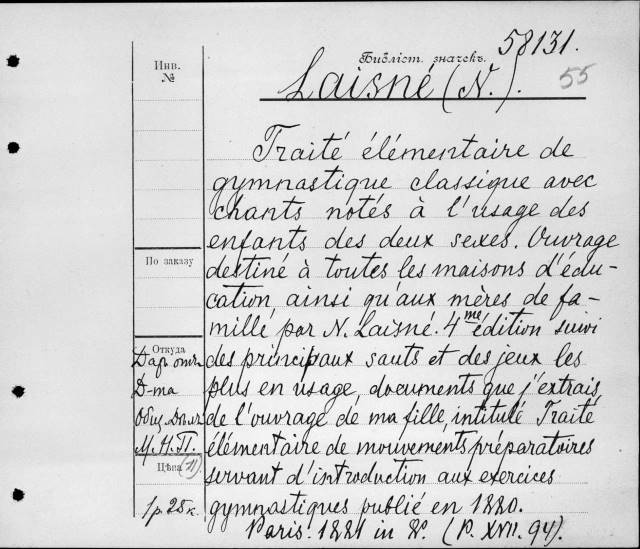 58131.
Библіот. значекъ.
55
Инв.
№
Laisné (N.).
Traité élémentaire de
gymnastique classique avec
chants notés à l'usage des
enfants des deux sexes. Ouvrage
По заказу
destiné à toutes les maisons d'édu-
cation, ainsi qu'aux mères de fa-
mille, par N. Laisné. 4me édition suivi
Откуда
Даръ отъ
Д-та
Общ. Дѣлъ
М. Н. П.
des principaux sauts et des jeux les
plus en usage, documents que j'extrais
de l'ouvrage de ma fille, intitulé Traité
élémentaire de mouvements préparatoires
Цѣна (21)
1 р. 25 к.
servant d'introduction aux exercices
gymnastiques publié en 1880.
Paris. 1881 in 8º. (P. XVII. 94).